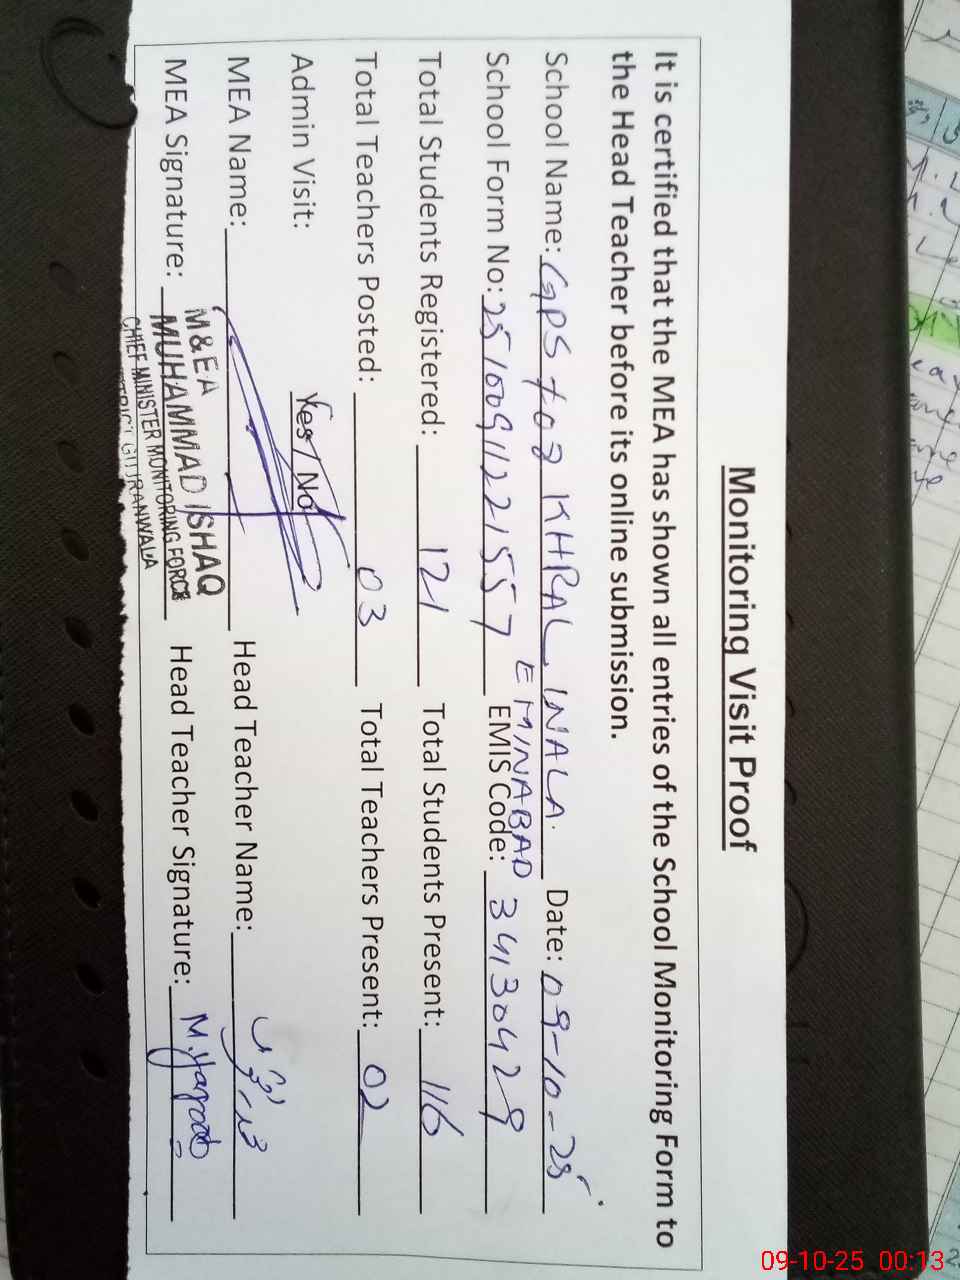 Monitoring Visit Proof
It is certified that the MEA has shown all entries of the School Monitoring Form to
the Head Teacher before its online submission.
School Name: GPS 702 KHRAL, INALA. Date: 09-10-25
EMINABAD
School Form No: 25100911221557 EMIS Code: 34130429
Total Students Registered: 121 Total Students Present: 116
Total Teachers Posted: 03 Total Teachers Present: 02
Admin Visit: Yes / No
MEA Name: Head Teacher Name:
M&EA
MEA Signature: MUHAMMAD ISHAQ Head Teacher Signature: M.Yaqoob
CHIEF MINISTER MONITORING FORCE
GUJRANWALA
09-10-25 00:13